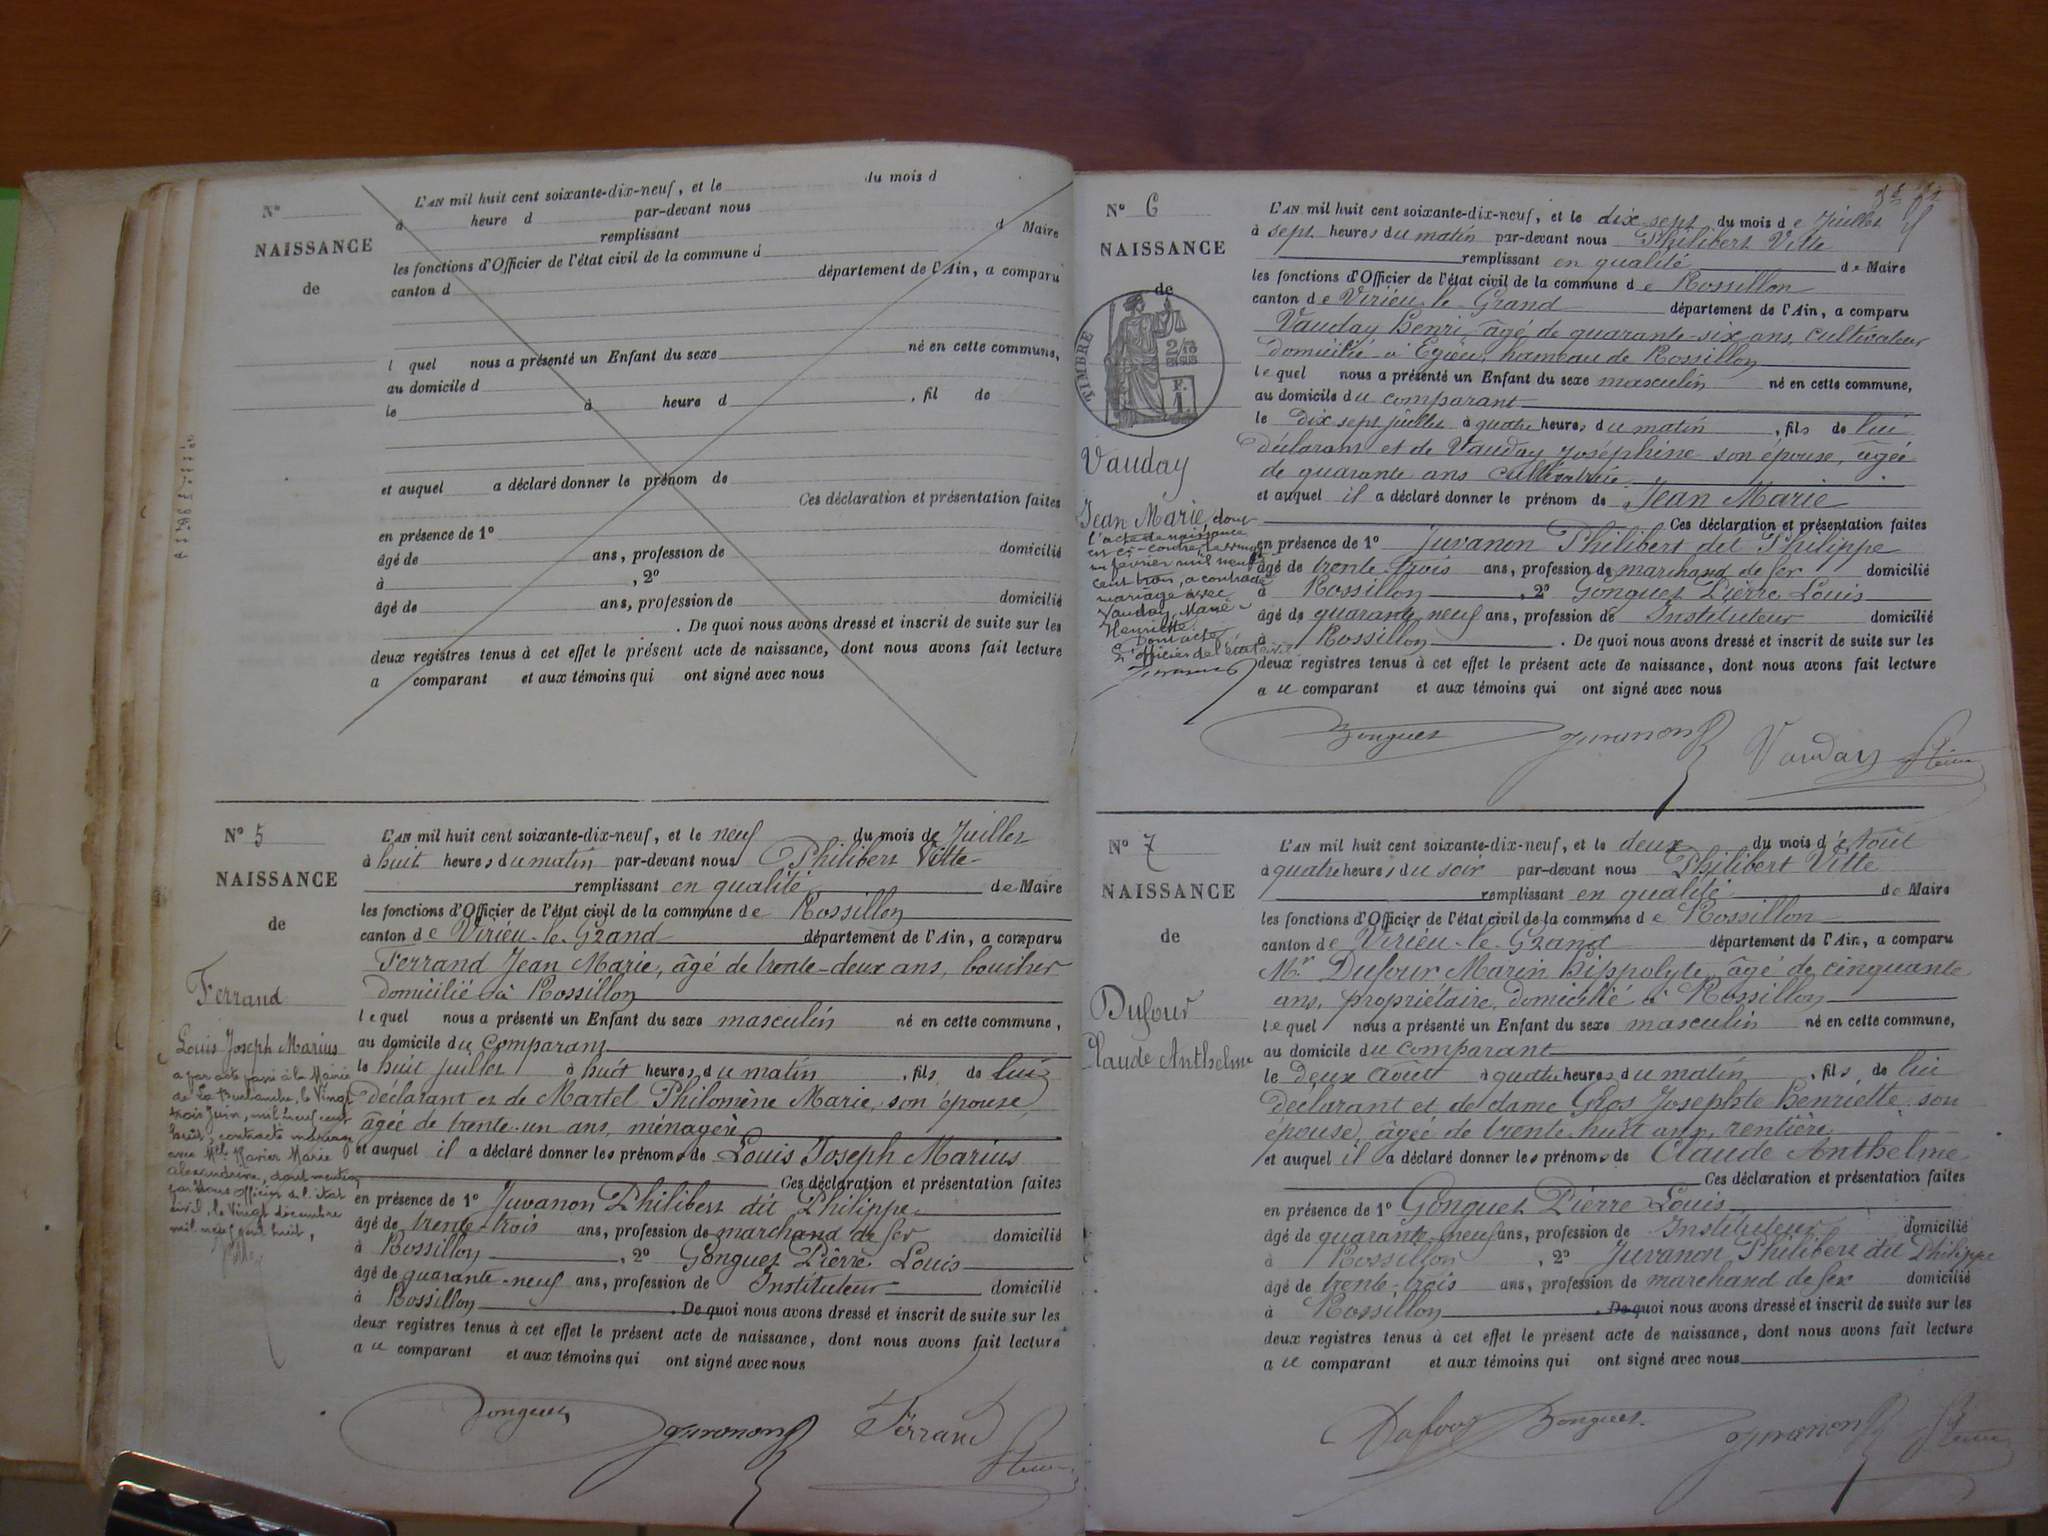 N°
NAISSANCE
de
L'AN mil huit cent soixante-dix-neuf, et le du mois d
à heure d par-devant nous
remplissant d Maire
les fonctions d'Officier de l'état civil de la commune d
canton d département de l'Ain, a comparu
l quel nous a présenté un Enfant du sexe né en cette commune,
au domicile d
le à heure d , fil de
et auquel a déclaré donner le prénom de
Ces déclaration et présentation faites
en présence de 1°
âgé de ans, profession de domicilié
à , 2°
âgé de ans, profession de domicilié
. De quoi nous avons dressé et inscrit de suite sur les
deux registres tenus à cet effet le présent acte de naissance, dont nous avons fait lecture
a comparant et aux témoins qui ont signé avec nous
N° 5
NAISSANCE
de
Ferrand
Louis Joseph Marius
a par acte passé à la Mairie
de La Burbanche, le Vingt
trois Juin, mil neuf cent
huit, contracté mariage
avec Mlle Marie
Alexandrine, dont mention
par Nous officier de l'état
civil, le Vingt décembre
mil neuf cent huit,
L'AN mil huit cent soixante-dix-neuf, et le neuf du mois de Juillet
à huit heures du matin par-devant nous Philibert Vitte
remplissant en qualité de Maire
les fonctions d'Officier de l'état civil de la commune de Rossillon
canton de Virieu-le-Grand département de l'Ain, a comparu
Ferrand Jean Marie, âgé de trente-deux ans, boucher
domicilié à Rossillon
lequel nous a présenté un Enfant du sexe masculin né en cette commune,
au domicile du Comparant
le huit juillet à huit heures du matin , fils de lui
déclarant et de Martel Philomène Marie, son épouse
âgée de trente-un ans, ménagère
et auquel il a déclaré donner les prénoms de Louis Joseph Marius
Ces déclaration et présentation faites
en présence de 1° Juvanon Philibert dit Philippe
âgé de trente-trois ans, profession de marchand de fer domicilié
à Rossillon , 2° Gonguet Pierre Louis
âgé de quarante-neuf ans, profession de Instituteur domicilié
à Rossillon . De quoi nous avons dressé et inscrit de suite sur les
deux registres tenus à cet effet le présent acte de naissance, dont nous avons fait lecture
au comparant et aux témoins qui ont signé avec nous
Gonguet Juvanon Ferrand
N° 6
NAISSANCE
de
TIMBRE
Vauday
Jean Marie, dont
l'acte de naissance
est ci-contre, le
février mil neuf
cent trois, a contracté
mariage avec
Vauday Marie
Henriette.
Dont acte
L'officier de l'état civil
L'AN mil huit cent soixante-dix-neuf, et le dix sept du mois de Juillet
à sept heures du matin par-devant nous Philibert Vitte
remplissant en qualité de Maire
les fonctions d'Officier de l'état civil de la commune de Rossillon
canton de Virieu-le-Grand département de l'Ain, a comparu
Vauday Henri, âgé de quarante-six ans, cultivateur
domicilié à Egieu, hameau de Rossillon
lequel nous a présenté un Enfant du sexe masculin né en cette commune,
au domicile du comparant
le dix sept juillet à quatre heures du matin , fils de lui
déclarant et de Vauday Joséphine son épouse, âgée
de quarante ans cultivatrice
et auquel il a déclaré donner le prénom de Jean Marie
Ces déclaration et présentation faites
en présence de 1° Juvanon Philibert dit Philippe
âgé de trente-trois ans, profession de marchand de fer domicilié
à Rossillon , 2° Gonguet Pierre Louis
âgé de quarante neuf ans, profession de Instituteur domicilié
à Rossillon . De quoi nous avons dressé et inscrit de suite sur les
deux registres tenus à cet effet le présent acte de naissance, dont nous avons fait lecture
au comparant et aux témoins qui ont signé avec nous
Gonguet Juvanon Vauday
N° 7
NAISSANCE
de
Dufour
Claude Anthelme
L'AN mil huit cent soixante-dix-neuf, et le deux du mois d'Août
à quatre heures du soir par-devant nous Philibert Vitte
remplissant en qualité de Maire
les fonctions d'Officier de l'état civil de la commune de Rossillon
canton de Virieu-le-Grand département de l'Ain, a comparu
Mr Dufour Marin Hippolyte, âgé de cinquante
ans, propriétaire, domicilié à Rossillon
lequel nous a présenté un Enfant du sexe masculin né en cette commune,
au domicile du comparant
le deux Août à quatre heures du matin , fils de lui
déclarant et de dame Gros Josephte Henriette son
épouse, âgée de trente-huit ans, rentière
et auquel il a déclaré donner les prénoms de Claude Anthelme
Ces déclaration et présentation faites
en présence de 1° Gonguet Pierre Louis
âgé de quarante-neuf ans, profession de Instituteur domicilié
à Rossillon , 2° Juvanon Philibert dit Philippe
âgé de trente-trois ans, profession de marchand de fer domicilié
à Rossillon . De quoi nous avons dressé et inscrit de suite sur les
deux registres tenus à cet effet le présent acte de naissance, dont nous avons fait lecture
au comparant et aux témoins qui ont signé avec nous
Dufour Gonguet Juvanon